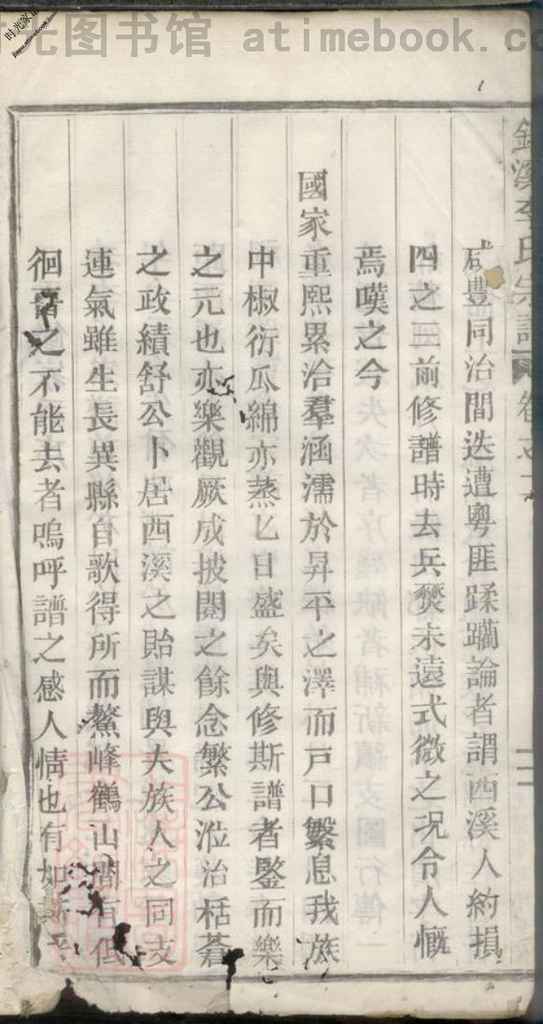 光图书馆 atimebook.co
時光家譜
李氏宗譜 卷之
咸豐同治間迭遭粵匪蹂躪論者謂西溪人約損
四之三前修譜時去兵燹未遠式微之况令人慨
焉嘆之今
國家重熙累洽羣涵濡於昇平之澤而戶口繁息我族
中椒衍瓜綿亦蒸乀日盛矣與修斯譜者鑒而樂
之元也亦樂觀厥成披閱之餘念繁公涖治栝蒼
之政績舒公卜居西溪之貽謀與夫族人之同支
連氣雖生長異縣自歌得所而鰲峰鶴山間有低
徊 之不能去者嗚呼譜之感人情也有如